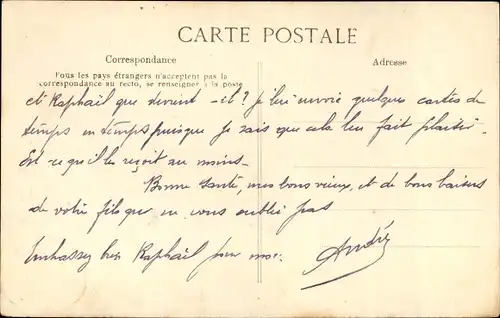 CARTE POSTALE
Correspondance
Adresse
Tous les pays étrangers n'acceptent pas la
correspondance au recto, se renseigner à la poste
et Raphaël que devient-il? je lui envoie quelques cartes de
temps en temps puisque je sais que cela leur fait plaisir.
Est-ce qu'il les reçoit au moins-
Bonne santé, mes bons vieux, et de bons baisers
de votre fils qui ne vous oublie pas
Embrassez bien Raphaël pour moi.
André